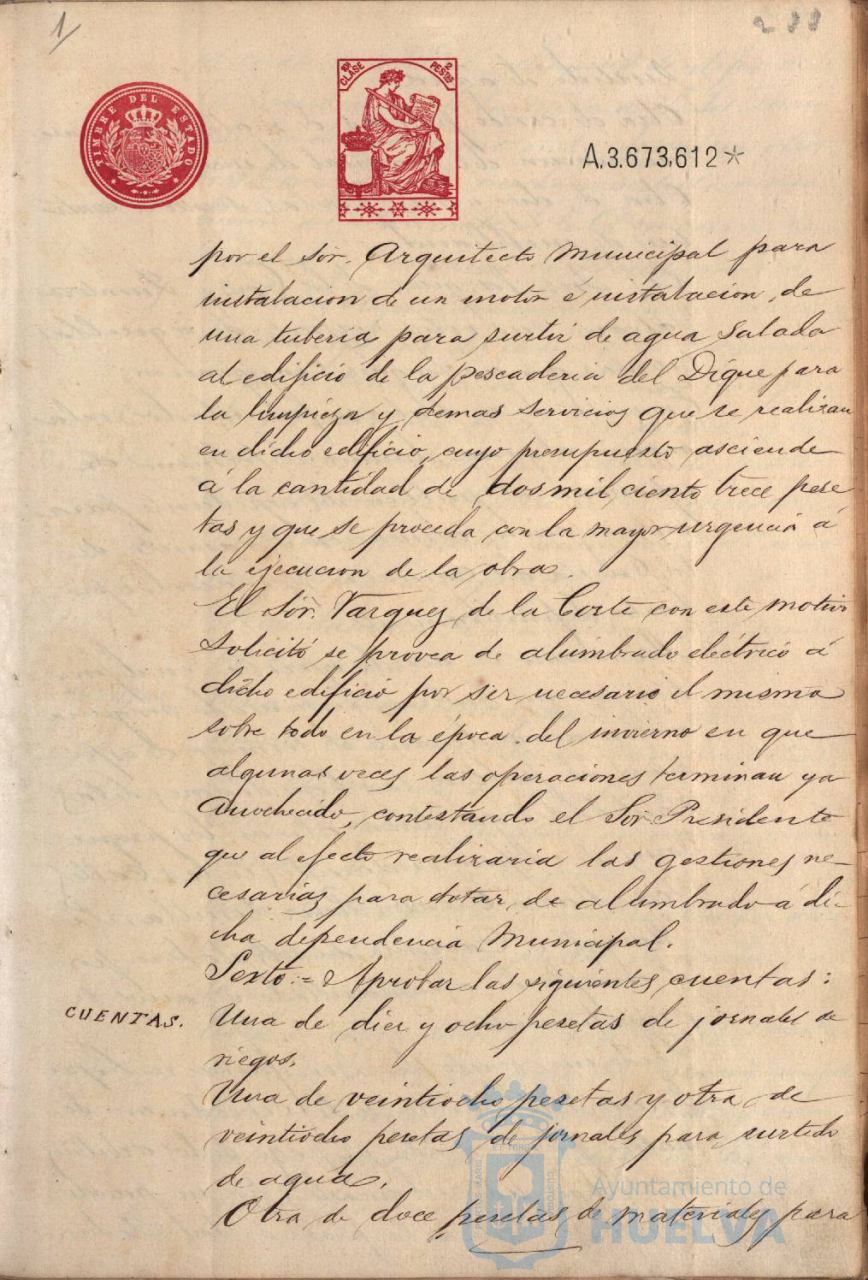 1/
288
TIMBRE DEL ESTADO
10ª CLASE
2 PESTAS
A.3.673,612*
por el Sor. Arquitecto Municipal para
instalacion de un motor é instalacion de
una tuberia para surtir de agua salada
al edificio de la pescaderia del Dique para
la limpieza y demas servicios que se realizan
en dicho edificio, cuyo presupuesto asciende
á la cantidad de dos mil ciento trece pese
tas y que se proceda con la mayor urgencia á
la ejecucion de la obra.
El Sor. Vazquez de la Corte con este motivo
solicitó se provea de alumbrado eléctrico á
dicho edificio por ser necesario el mismo
sobre todo en la época del invierno en que
algunas veces las operaciones terminan ya
anochecido, contestando el Sor. Presidente
que al efecto realizaria las gestiones ne-
cesarias para dotar de alumbrado á di-
cha dependencia Municipal.
Sexto:= Aprobar las siguientes cuentas:
CUENTAS.
Una de diez y ocho pesetas de jornales de
riegos.
Una de veintiocho pesetas y otra de
veintiocho pesetas de jornales para surtido
de agua.
Otra de doce pesetas de materiales para
Ayuntamiento de
HUELVA